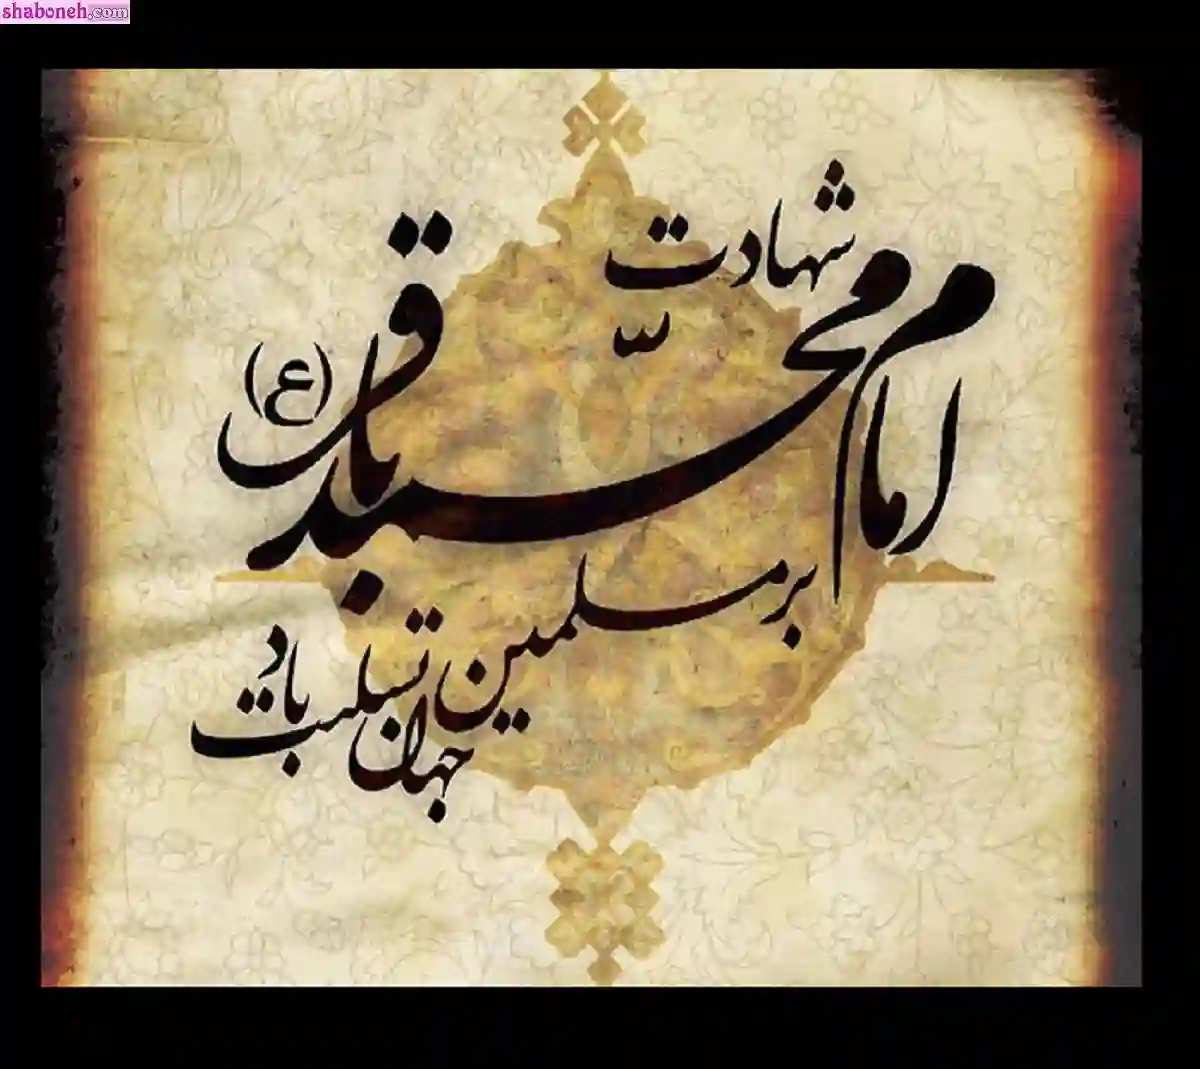 shaboneh.com
شهادت
امام محمد باقر (ع)
بر مسلمین
جهان تسلیت باد